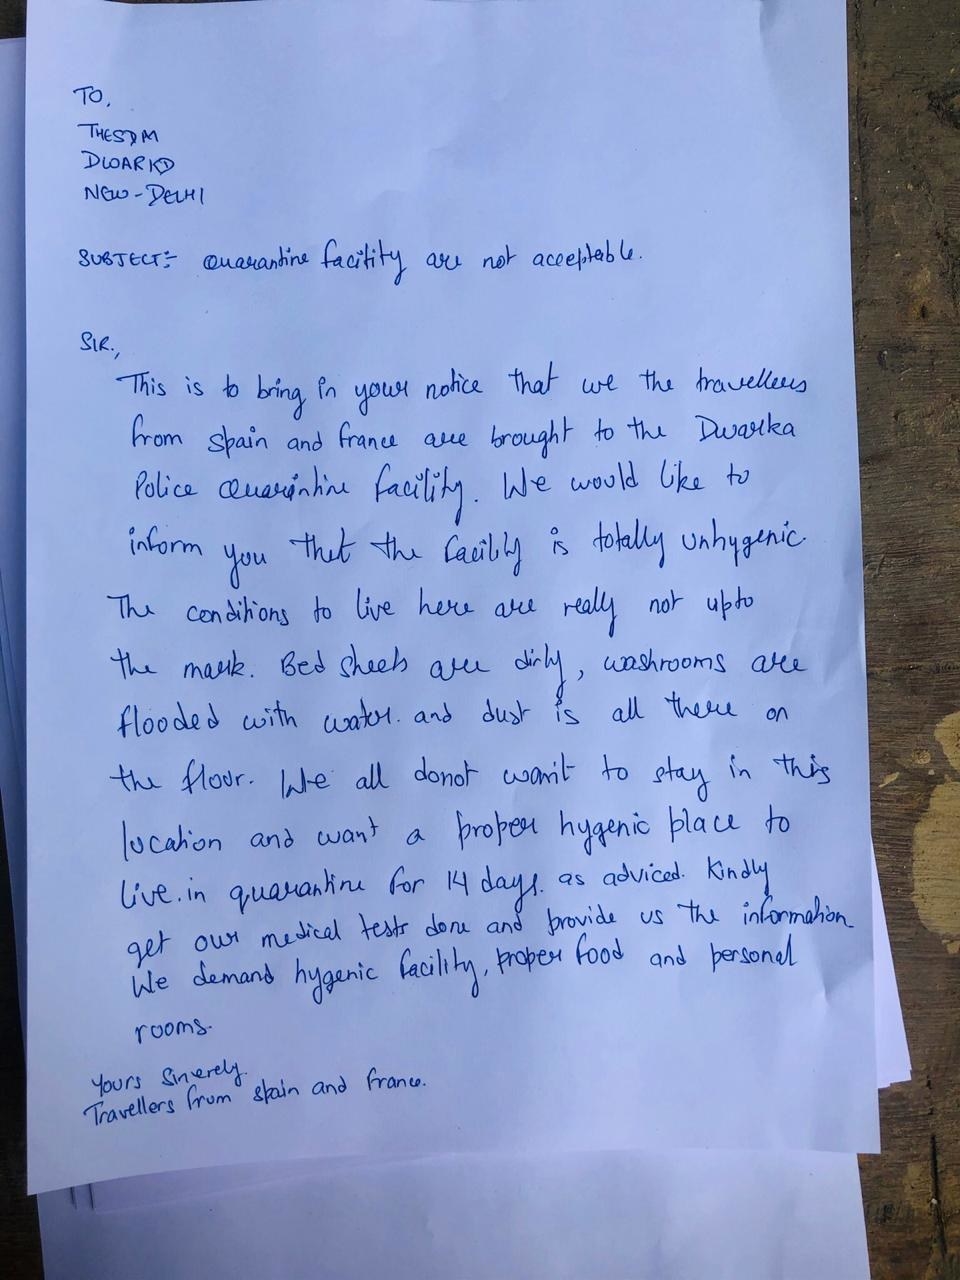 TO,
THE SDM
DWARKA
NEW-DELHI
SUBJECT:- Quarantine facility are not acceptable.
SIR,
This is to bring in your notice that we the travellers
from spain and france are brought to the Dwarka
Police Quarintine facility. We would like to
inform you that the facility is totally unhygenic.
The conditions to live here are really not upto
the mark. Bed sheets are dirty, washrooms are
flooded with water. and dust is all there on
the floor. We all donot want to stay in this
location and want a proper hygenic place to
live. in quarantine for 14 days. as adviced. Kindly
get our medical tests done and provide us the information
We demand hygenic facility, proper food and personal
rooms.
Yours Sincerely.
Travellers from spain and france.